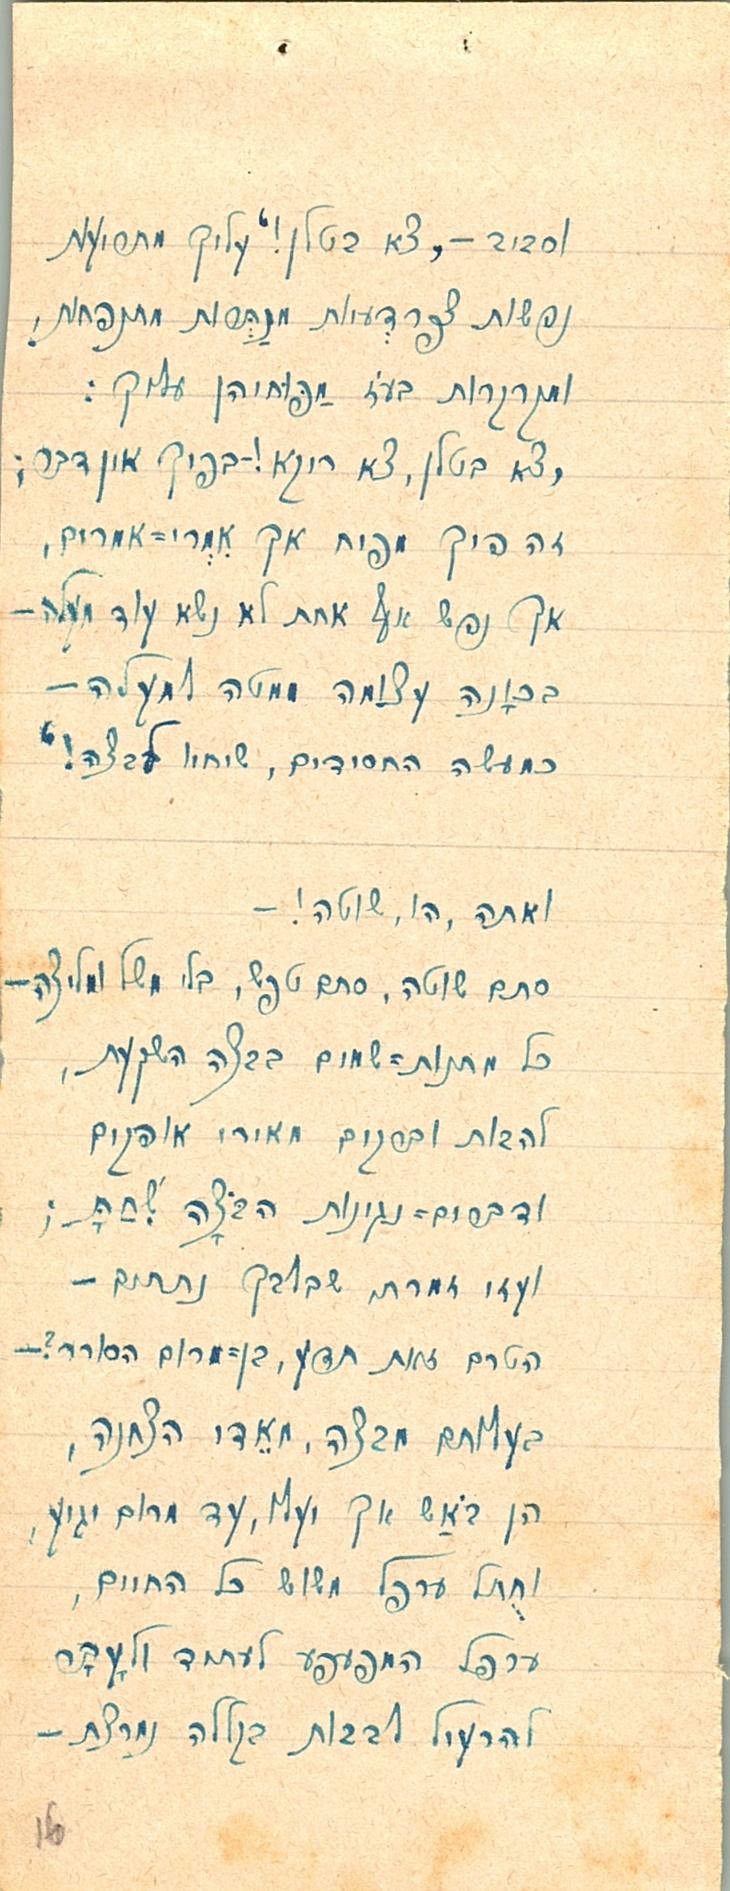 וסביב –, צא בטלן!" עליך מתריעות
נפשות צפרדעיות מנהרות מתנפחות,
ומקרקרות בעז מפוחיהן עליך:
,צא בטלן, צא ריקא! – בפיך אין דבר;
זה פיך מפיח אך אמרי=אמרים,
אך נפש אף אחת לא נשא עוד מעלה –
בכונה עצומה ממטה למעלה –
כמעשה החסידים, שיחיו לבצה!"
ואתה, הו, שוטה! –
סתם שוטה, סתם טפש, בלי משל ומליצה –
כל מתנות=שמים בבצה השקעת,
להבות וברקים מאירי אופקים
ודבשים=נגינות הבצה שחת;
ועזי זמרת, שבלבך נתחים –
הטרם זאת תדע, בן=מרום הסורר? –
בעלותם מבצה, מאדי הצחנה,
הן באש אך יעלו, עד מרום יגיע,
וחתל ערפל משוש כל החיים,
ערפל המפעפע לעתיד ולעבר
להרעיל לבבות בקללה נמרצת –
16